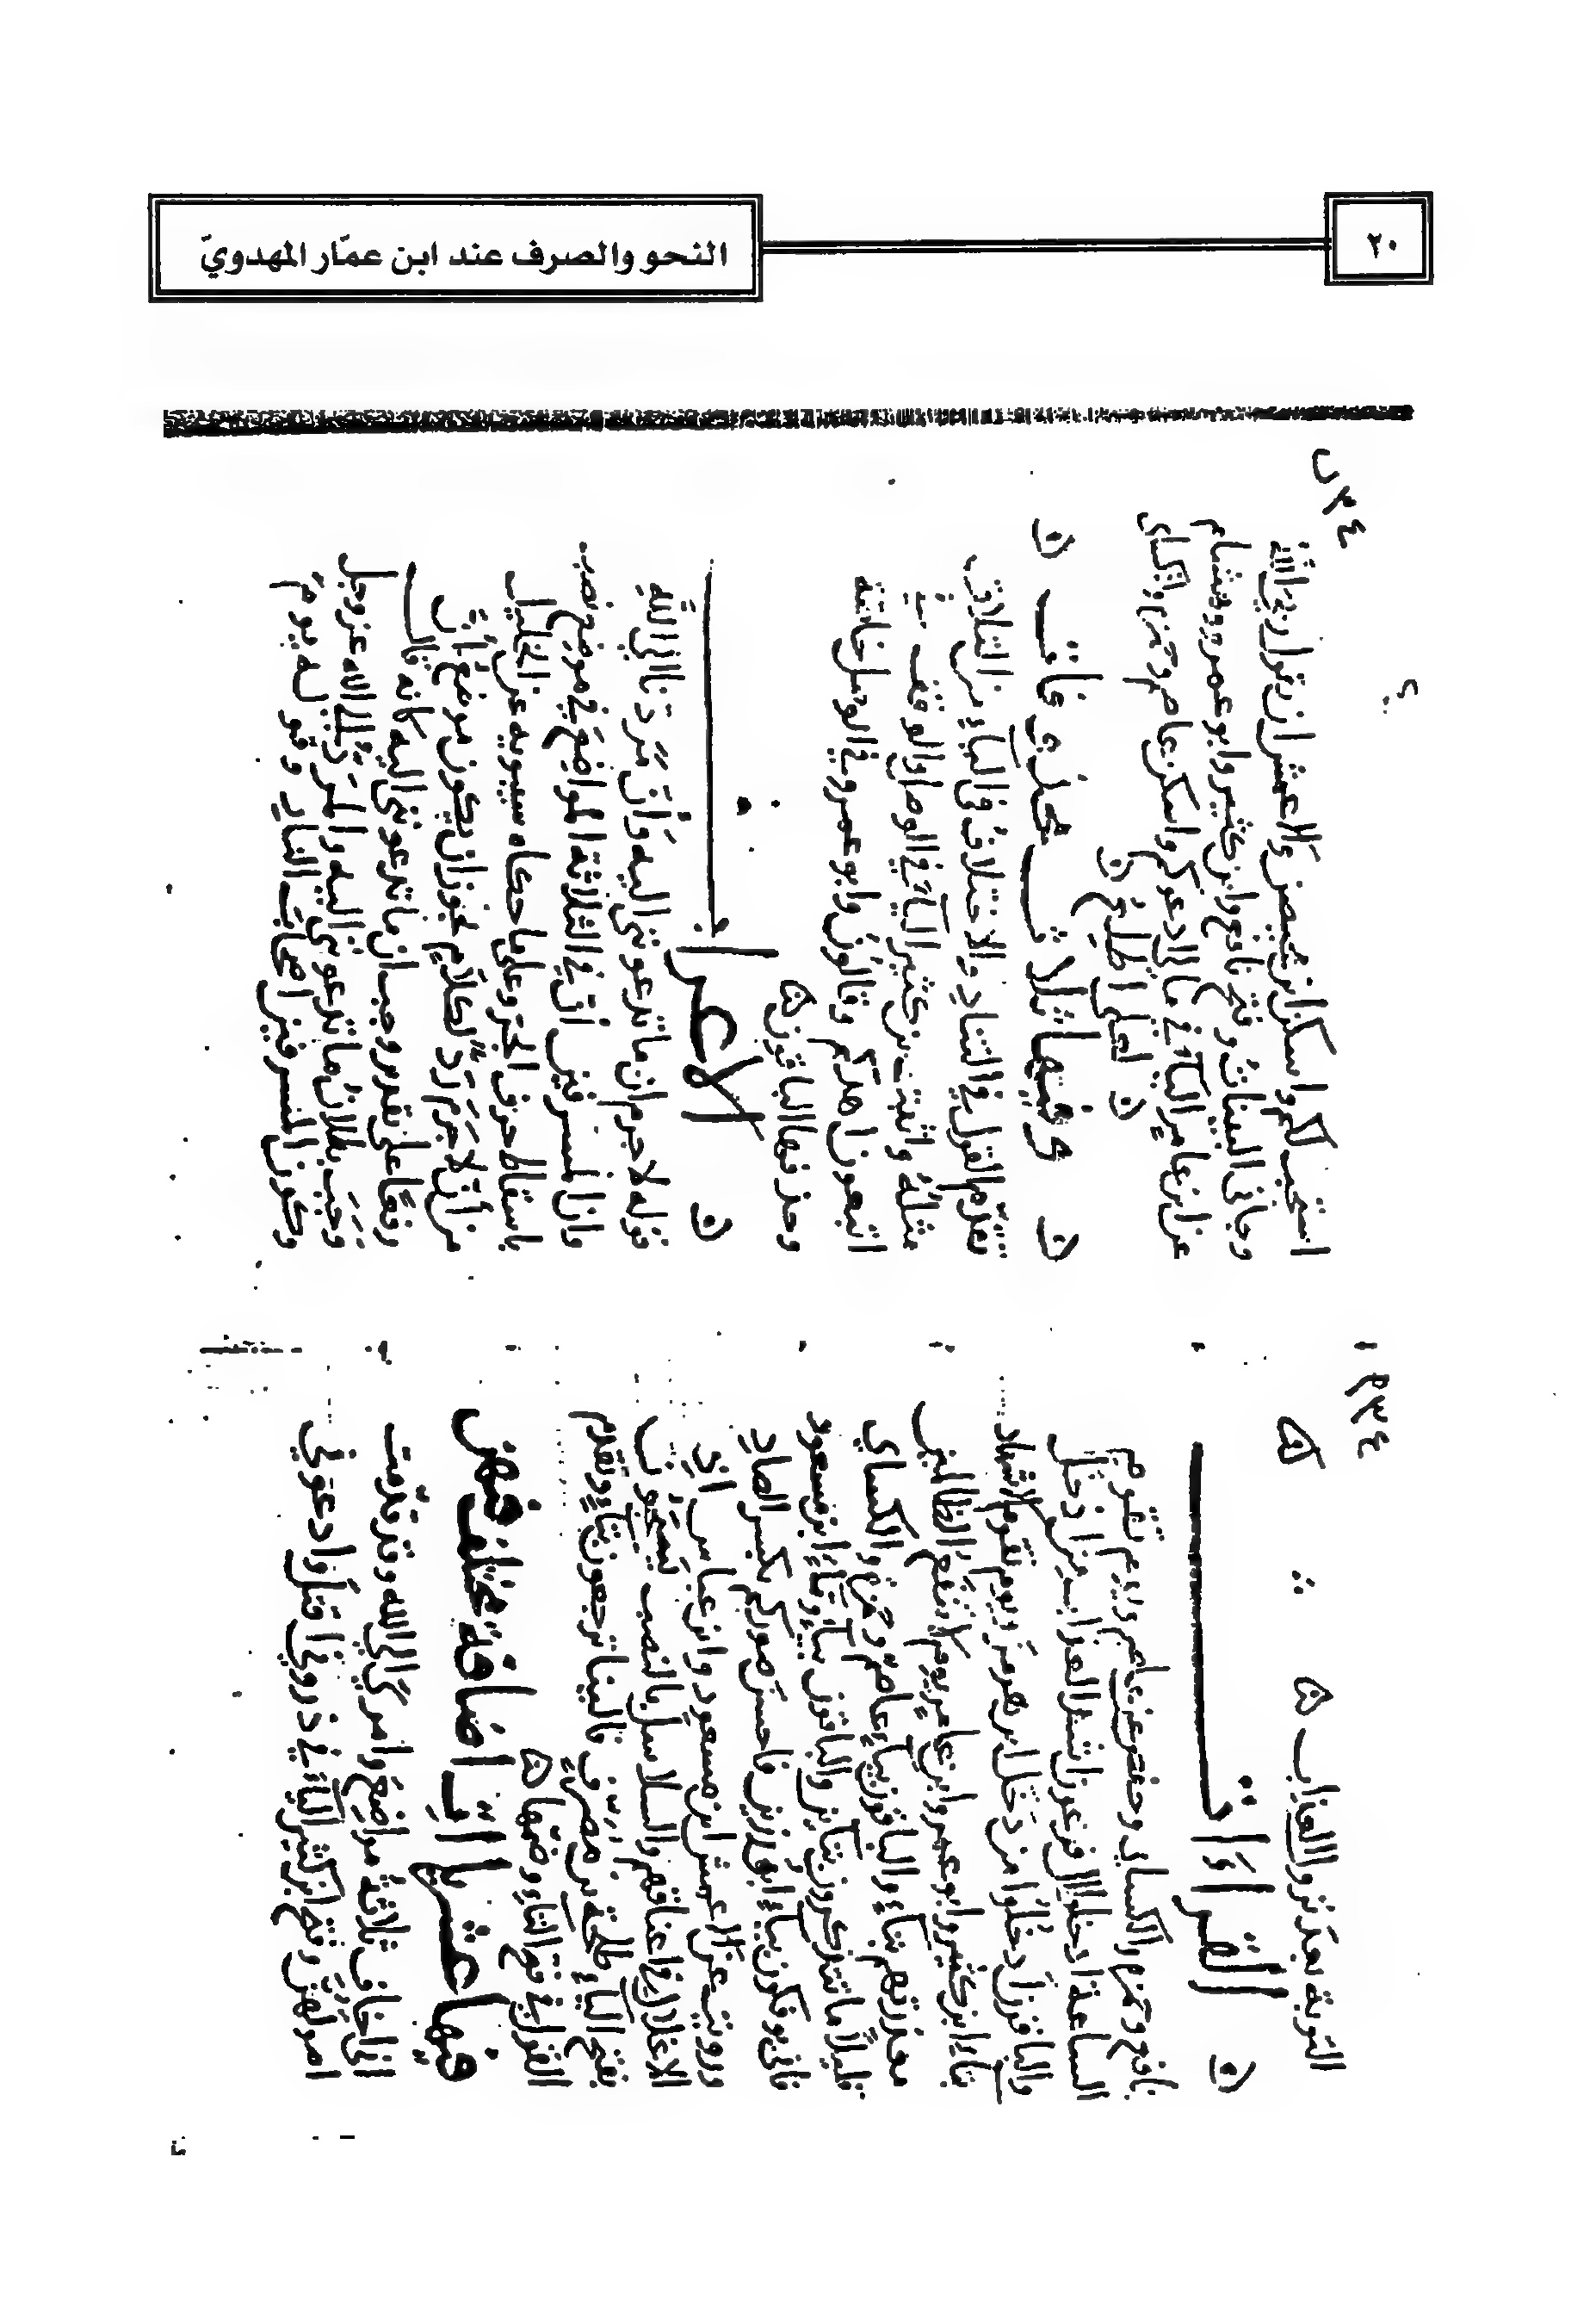 ٢٠
النحو والصرف عند ابن عمّار المهدويّ
٣٤
التوبة بعد نزول العذاب
القراءات
نافع وحمزة والكساي وحفص عن عاصم ويوم تقوم
الساعة ادخلوا ال فرعون اشد العذاب من ادخل
والباقون ادخلوا من دخل ابن هرمز ويوم تقوم الاشهاد
بتاء ابن كثير وابو عمرو وابن عامر يوم لا تنفع الظالمين
معذرتهم بتاء والباقون بياء عاصم وحمزة والكساي
قليلا ما تتذكرون بتاين والباقون بياء وتاء ابن مسعود
ابو رزين فاحسن صوركم بكسر الصاد
ورويت عن الاعمش ابن مسعود وابن عباس اذ
الاغلال في اعناقهم والسلاسل بالنصب يسحبون
بفتح الياء طلحة بن مصرف فالينا ترجعون بتاء وتقدم
القول في فتح التاء وضمها
فيها عشر ياات اضافة اختلف فيهن
اني اخاف ثلاثة مواضع وامري الى الله وقد تقدمت
اصولهن وفتح ابن كثير الياء في ذروني اقتل وادعوني
٣٤ ب
استجب لكم واسكن ابن محيصن والاعمش ان يقول ربي الله
وجاني البينات وفتح نافع وابن كثير وابو عمرو وهشام
عن ابن عامر الياء في ما لي ادعوكم واسكن عاصم وحمزة والكساي
لعلي اطلع
وفيها ثلاث محذوفات
تقدم القول في التناد والاختلاف في الياء من التلاق
مثله واثبت بن كثير الياء في الوصل والوقف في
اتبعون اهدكم وقالون وابو عمرو في الوصل خاصة
وحذفها الباقون
الاعراب
قوله لا جرم ان ما تدعونني اليه وان مردنا الى الله
وان المسرفين ان في الثلاثة المواضع في موضع نصب
باسقاط حرف الجر وعلى ما حكاه سيبويه عن الخليل
من ان لا جرم رد لكلام يجوز ان يكون موضع ان
رفعا على تقدير وجب ان ما تدعونني اليه كانه قال
وجب بطلان ما تدعونني اليه والمرد الى الله عز وجل
وكون المسرفين اصحاب النار وقوله يوم